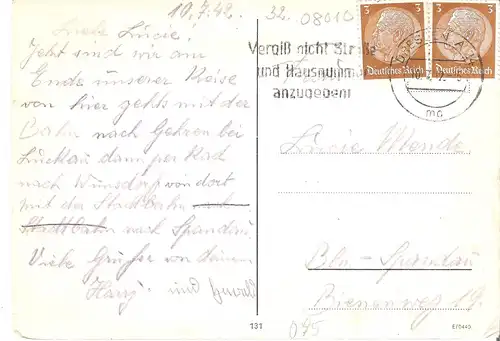 10.7.42.
32.
08010
Liebe Lucie!
Jetzt sind wir am
Ende unserer Reise
von hier gehts mit der
Bahn nach Gehren bei
Luckau dann per Rad
nach Wünsdorf von dort
mit der Stadtbahn
Stadtbahn nach Spandau.
Viele Grüße von deinem
Harry. und
Vergiß nicht Straße
und Hausnummer
anzugeben!
3 3
Deutsches Reich Deutsches Reich
mc
Lucie Wende
Bln - Spandau
Bienenweg 19.
045
131
E/0440